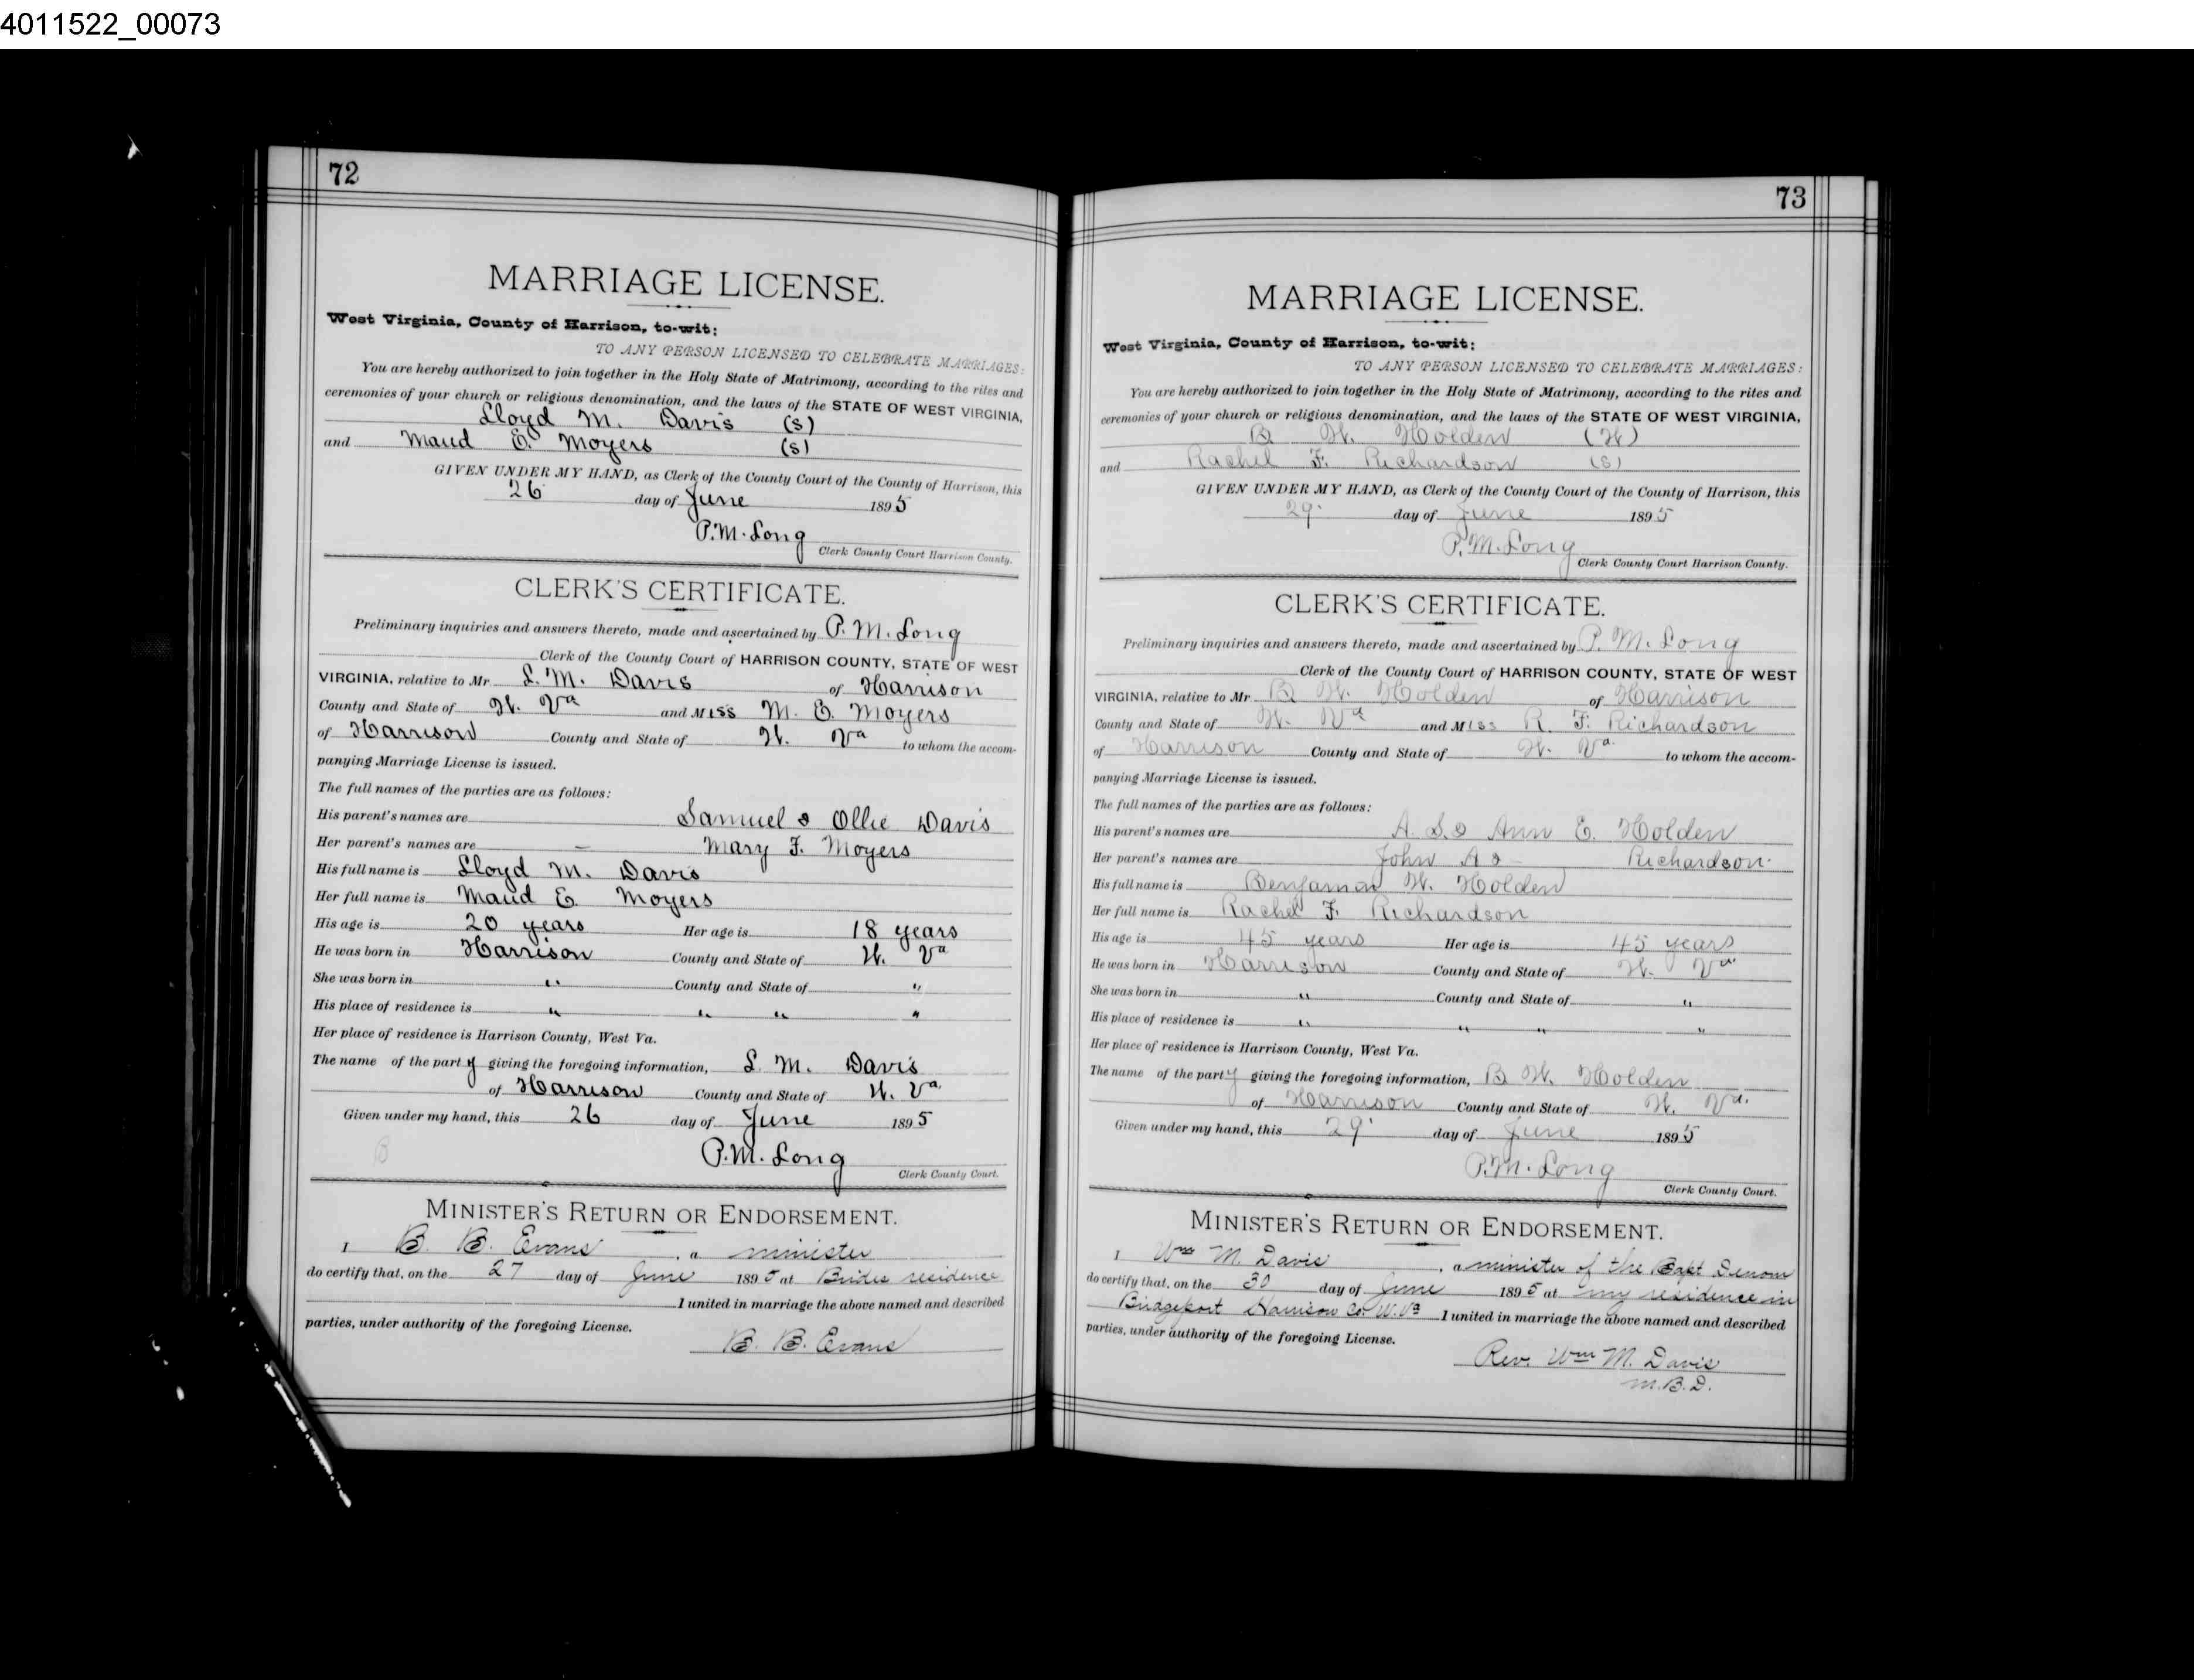 4011522_00073
72
MARRIAGE LICENSE.
West Virginia, County of Harrison, to-wit:
TO ANY PERSON LICENSED TO CELEBRATE MARRIAGES:
You are hereby authorized to join together in the Holy State of Matrimony, according to the rites and
ceremonies of your church or religious denomination, and the laws of the STATE OF WEST VIRGINIA,
Lloyd M. Davis (S)
and Maud E. Moyers (S)
GIVEN UNDER MY HAND, as Clerk of the County Court of the County of Harrison, this
26 day of June 1895
P.M. Long
Clerk County Court Harrison County.
CLERK'S CERTIFICATE.
Preliminary inquiries and answers thereto, made and ascertained by P. M. Long
Clerk of the County Court of HARRISON COUNTY, STATE OF WEST
VIRGINIA, relative to Mr. L. M. Davis of Harrison
County and State of W. Va and Miss M. E. Moyers
of Harrison County and State of W. Va to whom the accom-
panying Marriage License is issued.
The full names of the parties are as follows:
His parent's names are Samuel & Ollie Davis
Her parent's names are — Mary F. Moyers
His full name is Lloyd M. Davis
Her full name is Maud E. Moyers
His age is 20 years Her age is 18 years
He was born in Harrison County and State of W. Va
She was born in " County and State of "
His place of residence is " " " "
Her place of residence is Harrison County, West Va.
The name of the party giving the foregoing information, L. M. Davis
of Harrison County and State of W. Va.
Given under my hand, this 26 day of June 1895
B
P.M. Long
Clerk County Court.
MINISTER'S RETURN OR ENDORSEMENT.
I B. B. Evans, a minister
do certify that, on the 27 day of June 1895 at Brides residence
I united in marriage the above named and described
parties, under authority of the foregoing License.
B. B. Evans
73
MARRIAGE LICENSE.
West Virginia, County of Harrison, to-wit:
TO ANY PERSON LICENSED TO CELEBRATE MARRIAGES:
You are hereby authorized to join together in the Holy State of Matrimony, according to the rites and
ceremonies of your church or religious denomination, and the laws of the STATE OF WEST VIRGINIA,
B W. Holden (W)
and Rachel F. Richardson (S)
GIVEN UNDER MY HAND, as Clerk of the County Court of the County of Harrison, this
29 day of June 1895
P.M. Long
Clerk County Court Harrison County.
CLERK'S CERTIFICATE.
Preliminary inquiries and answers thereto, made and ascertained by P. M. Long
Clerk of the County Court of HARRISON COUNTY, STATE OF WEST
VIRGINIA, relative to Mr. B W. Holden of Harrison
County and State of W. Va and Miss R. F. Richardson
of Harrison County and State of W. Va. to whom the accom-
panying Marriage License is issued.
The full names of the parties are as follows:
His parent's names are A. S. & Ann E. Holden
Her parent's names are John A & — Richardson
His full name is Benjamin W. Holden
Her full name is Rachel F. Richardson
His age is 45 years Her age is 45 years
He was born in Harrison County and State of W. Va
She was born in " County and State of "
His place of residence is " " " "
Her place of residence is Harrison County, West Va.
The name of the party giving the foregoing information, B W. Holden
of Harrison County and State of W. Va.
Given under my hand, this 29 day of June 1895
P.M. Long
Clerk County Court.
MINISTER'S RETURN OR ENDORSEMENT.
I Wm M. Davis, a minister of the Bapt Denom
do certify that, on the 30 day of June 1895 at my residence in
Bridgeport Harrison Co. W. Va I united in marriage the above named and described
parties, under authority of the foregoing License.
Rev. Wm M. Davis
M.B.D.